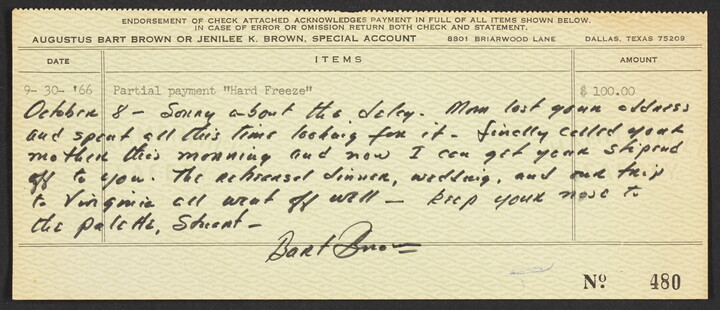 ENDORSEMENT OF CHECK ATTACHED ACKNOWLEDGES PAYMENT IN FULL OF ALL ITEMS SHOWN BELOW.
IN CASE OF ERROR OR OMISSION RETURN BOTH CHECK AND STATEMENT.
AUGUSTUS BART BROWN OR JENILEE K. BROWN, SPECIAL ACCOUNT 8801 BRIARWOOD LANE DALLAS, TEXAS 75209
DATE ITEMS AMOUNT
9-30-'66 Partial payment "Hard Freeze" $ 100.00
October 8 - Sorry about the delay. Mom lost your address
and spent all this time looking for it - finally called your
mother this morning and now I can get your stipend
off to you. The rehearsal dinner, wedding, and our trip
to Virginia all went off well - keep your nose to
the palette, Stuart -
Bart Brown
No. 480